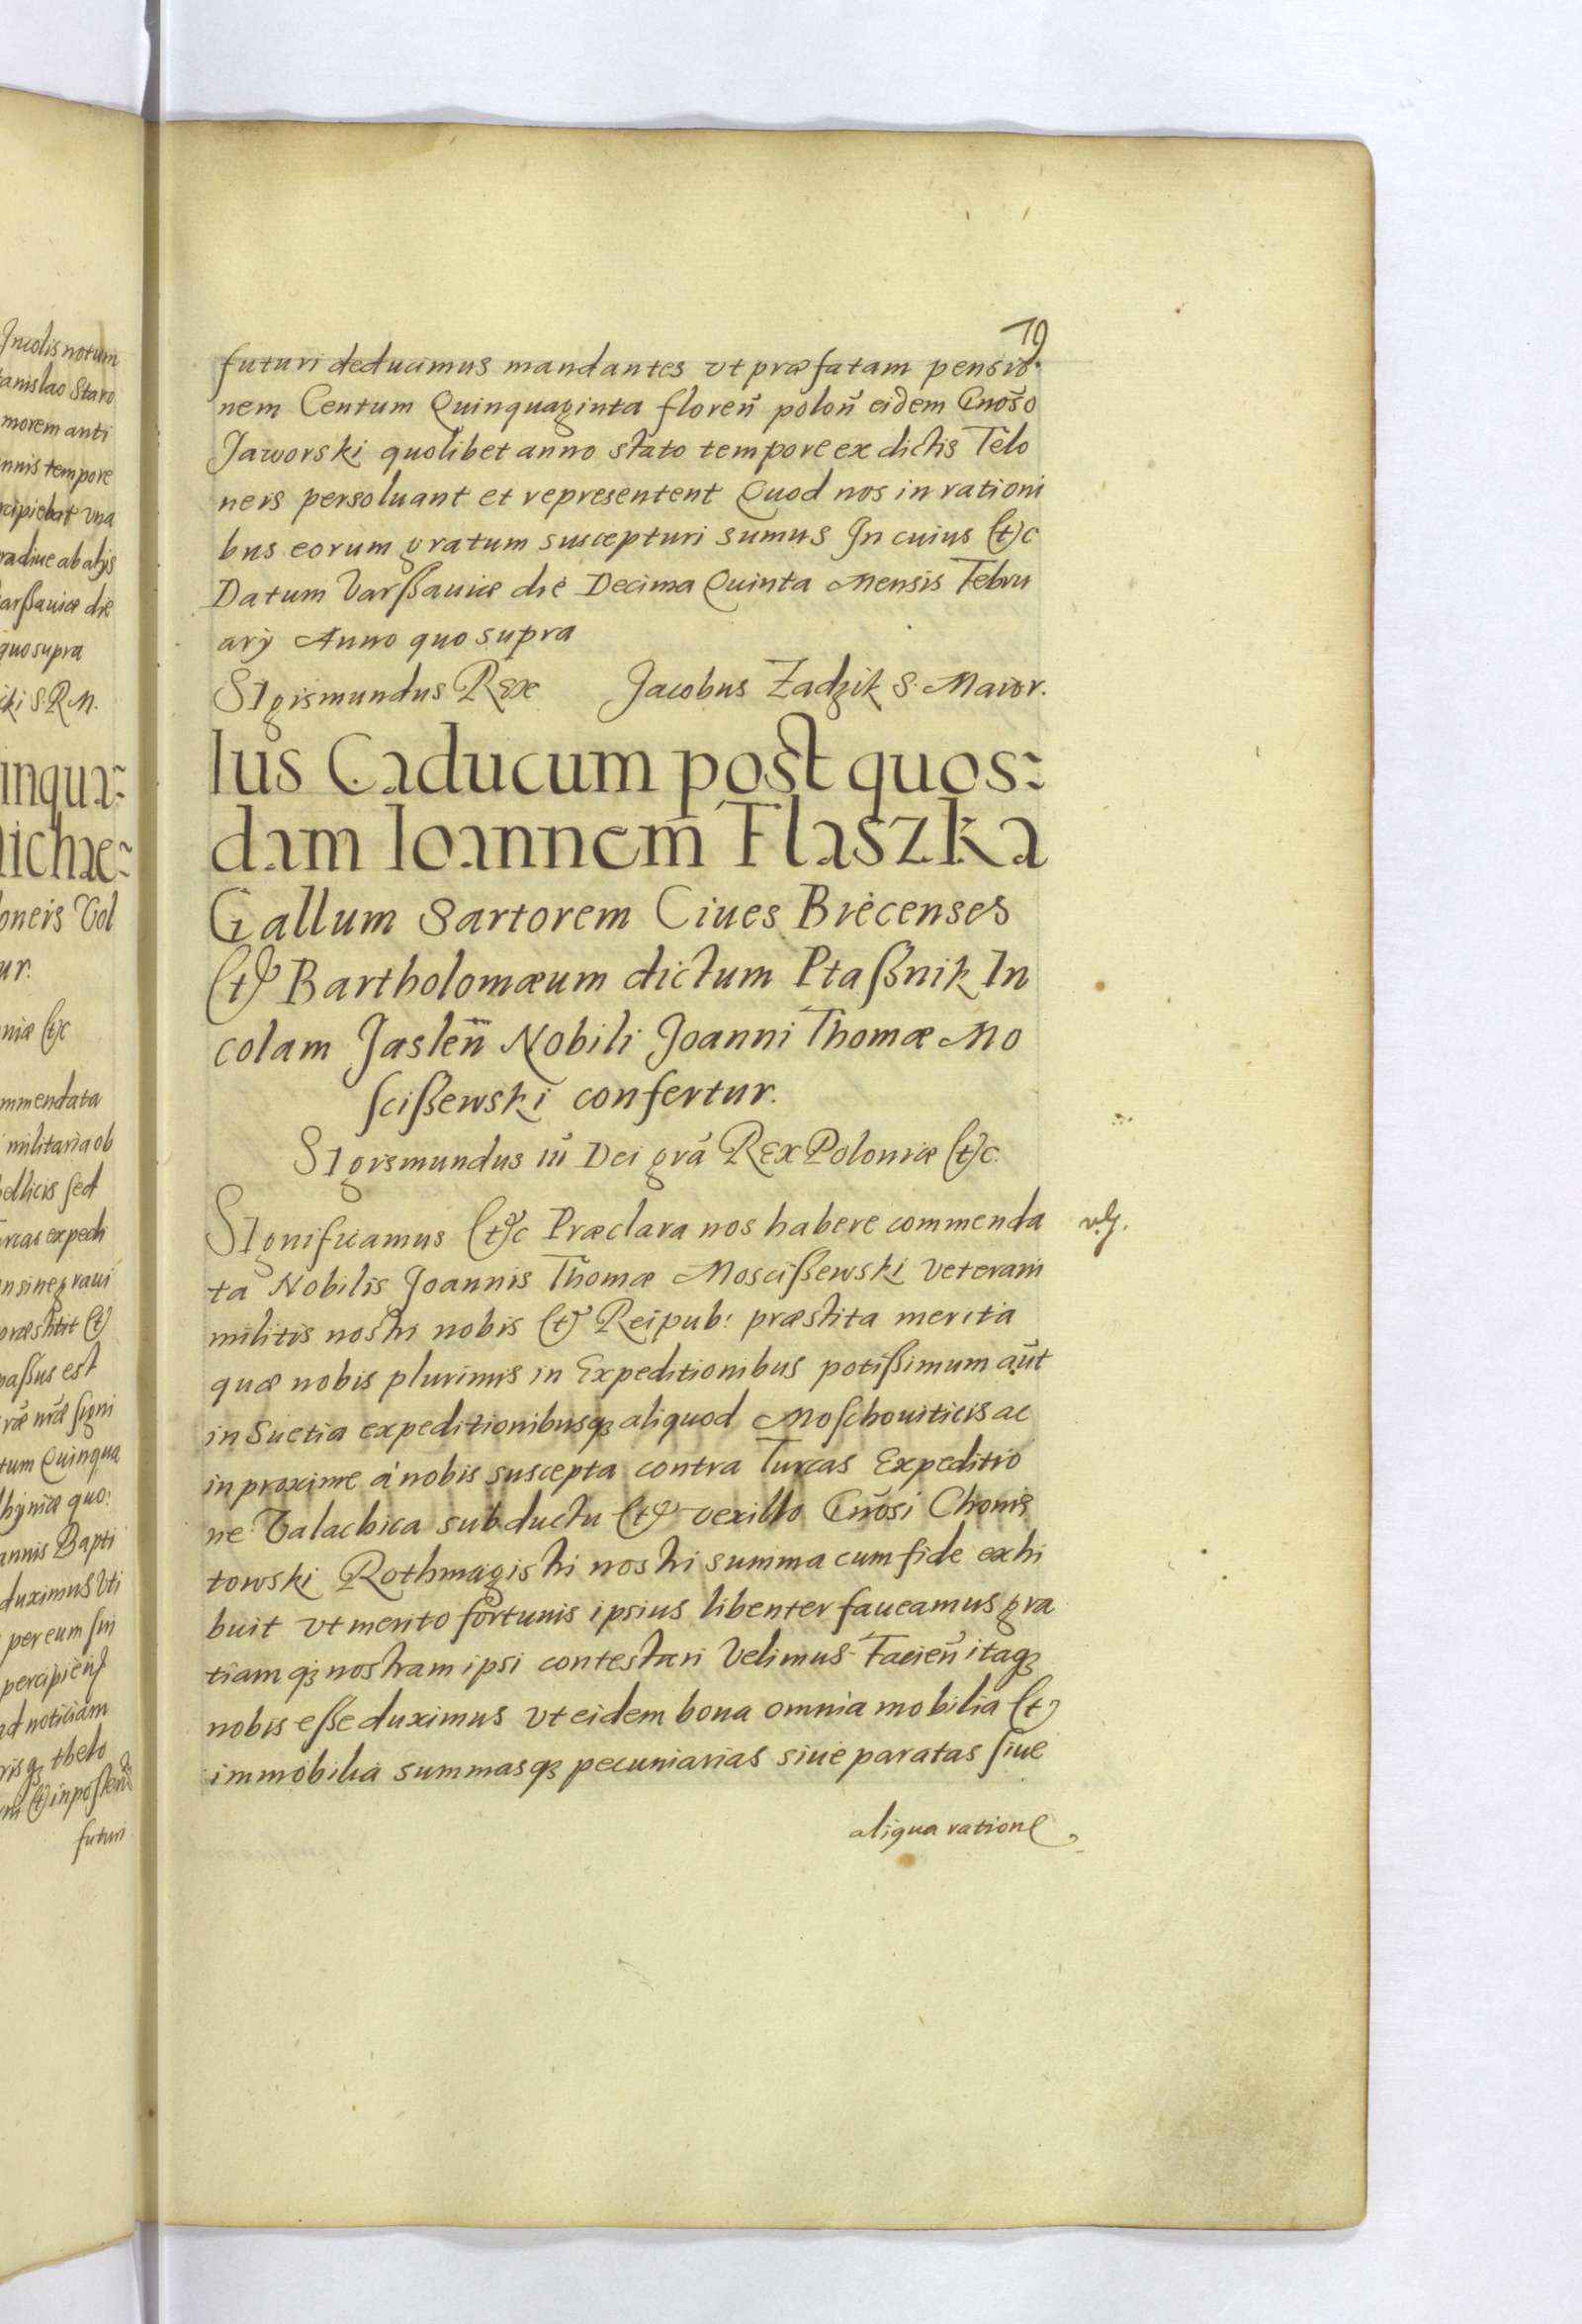 19
futuri deducimus mandantes vt præfatam pensio
nem Centum Quinquaginta floren̄ polon̄ eidem Gnōso
Jaworski quolibet anno stato tempore ex dictis Telo
neis persoluant et representent Quod nos in rationi
bus eorum gratum suscepturi sumus In cuius etc
Datum Varßauiæ die Decima Quinta Mensis Febru
arij Anno quo supra
SIgismundus REx Jacobus Zadzik S. Maior.
Ius Caducum post quos-
dam Ioannem Flaszka
Gallum Sartorem Ciues Biecenses
et Bartholomæum dictum Ptaßnik In
colam Jaslen̄ Nobili Joanni Thomæ Mo
scißewski confertur.
SIgismundus iii Dei grā REx Poloniæ etc
SIgnificamus etc Præclara nos habere commenda
ta Nobilis Joannis Thomæ Moscißewski Veterani
militis nostri nobis et Reipub: præstita merita
quæ nobis plurimis in Expeditionibus potißimum aut̄
in Suetia expeditionibusq; aliquod Moschouiticis ac
in proxime à nobis suscepta contra Turcas Expeditio
ne Valachica sub ductu et vexillo Gn̄osi Chomę
towski Rothmagistri nostri summa cum fide exhi
buit vt merito fortunis ipsius libenter faueamus gra
tiamq; nostram ipsi contestari Velimus Facien̄ itaq;
nobis eße duximus vt eidem bona omnia mobilia et
immobilia summasq; pecuniarias siue paratas siue
aliqua ratione
Incolis notum
tanislao Staro
morem anti
nnis tempore
rcipiebat vna
radiue ab alijs
arßauiæ die
quo supra
iki S.R.M.
inqua-
lichae-
oneis Vol
ur.
niæ etc
mmendata
militaria ob
bellicis sed
rcas expedi
n sine graui
præstitit et
paßus est
ræ nr̄æ signi
tum Quinqua
hyniæ quo:
annis Bapti
duximus Vti
per eum sin
percipien̄
ad noticiam
risq; thelo
m et in posterū
futuri